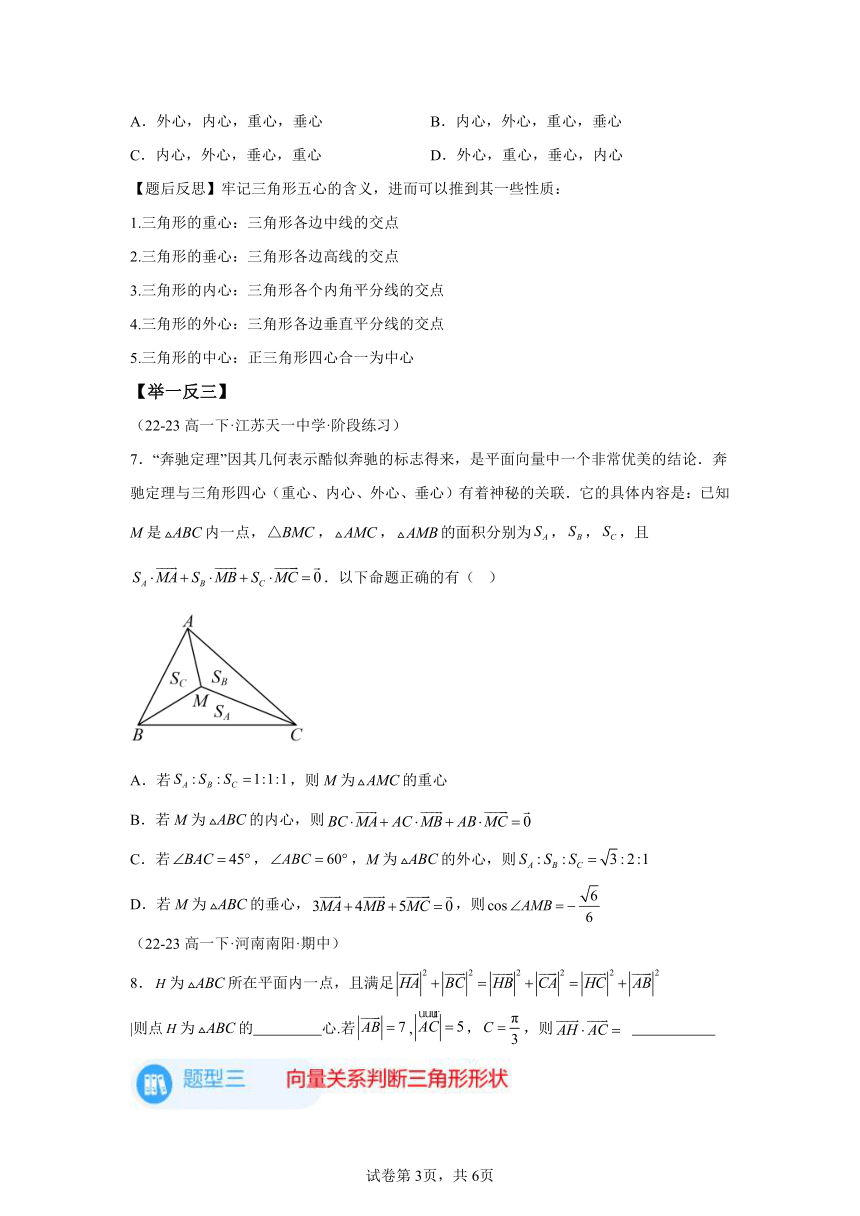 A．外心，内心，重心，垂心 B．内心，外心，重心，垂心
C．内心，外心，垂心，重心 D．外心，重心，垂心，内心
【题后反思】牢记三角形五心的含义，进而可以推到其一些性质：
1.三角形的重心：三角形各边中线的交点
2.三角形的垂心：三角形各边高线的交点
3.三角形的内心：三角形各个内角平分线的交点
4.三角形的外心：三角形各边垂直平分线的交点
5.三角形的中心：正三角形四心合一为中心
【举一反三】
（22-23 高一下·江苏天一中学·阶段练习）
7．“奔驰定理”因其几何表示酷似奔驰的标志得来，是平面向量中一个非常优美的结论．奔
驰定理与三角形四心（重心、内心、外心、垂心）有着神秘的关联．它的具体内容是：已知
M 是△ABC 内一点，△BMC，△AMC，△AMB 的面积分别为 S_A，S_B，S_C，且
S_A·\overrightarrow{MA}+S_B·\overrightarrow{MB}+S_C·\overrightarrow{MC}=\vec{0}．以下命题正确的有（ ）
A
S_C S_B
M
S_A
B C
A．若 S_A:S_B:S_C=1:1:1，则 M 为△AMC 的重心
B．若 M 为△ABC 的内心，则 BC·\overrightarrow{MA}+AC·\overrightarrow{MB}+AB·\overrightarrow{MC}=\vec{0}
C．若∠BAC=45°，∠ABC=60°，M 为△ABC 的外心，则 S_A:S_B:S_C=√3:2:1
D．若 M 为△ABC 的垂心，3\overrightarrow{MA}+4\overrightarrow{MB}+5\overrightarrow{MC}=\vec{0}，则 cos∠AMB=-\frac{√6}{6}
（22-23 高一下·河南南阳·期中）
8．H 为△ABC 所在平面内一点，且满足|\overrightarrow{HA}|²+|\overrightarrow{BC}|²=|\overrightarrow{HB}|²+|\overrightarrow{CA}|²=|\overrightarrow{HC}|²+|\overrightarrow{AB}|²
|则点 H 为△ABC 的________心.若|\overrightarrow{AB}|=7,|AC|=5，C=\frac{π}{3}，则\overrightarrow{AH}·\overrightarrow{AC}= __________
题型三 向量关系判断三角形形状
试卷第 3页，共 6页